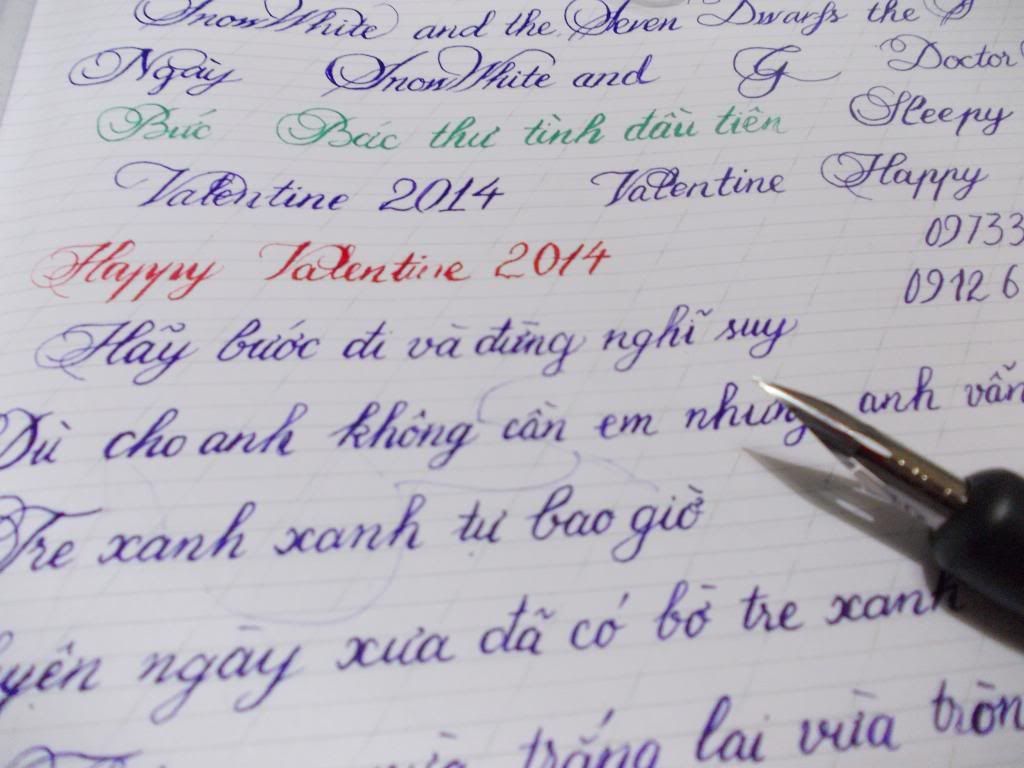 SnowWhite and the Seven Dwarfs the S
Ngày SnowWhite and G Doctor
Bức Bức thư tình đầu tiên Sleepy
Valentine 2014 Valentine Happy
09733
Happy Valentine 2014
0912 6
Hãy bước đi và đừng nghĩ suy
Dù cho anh không cần em nhưng anh vẫn
Tre xanh xanh tự bao giờ
uyên ngày xưa đã có bờ tre xanh
trắng lại vừa tròn